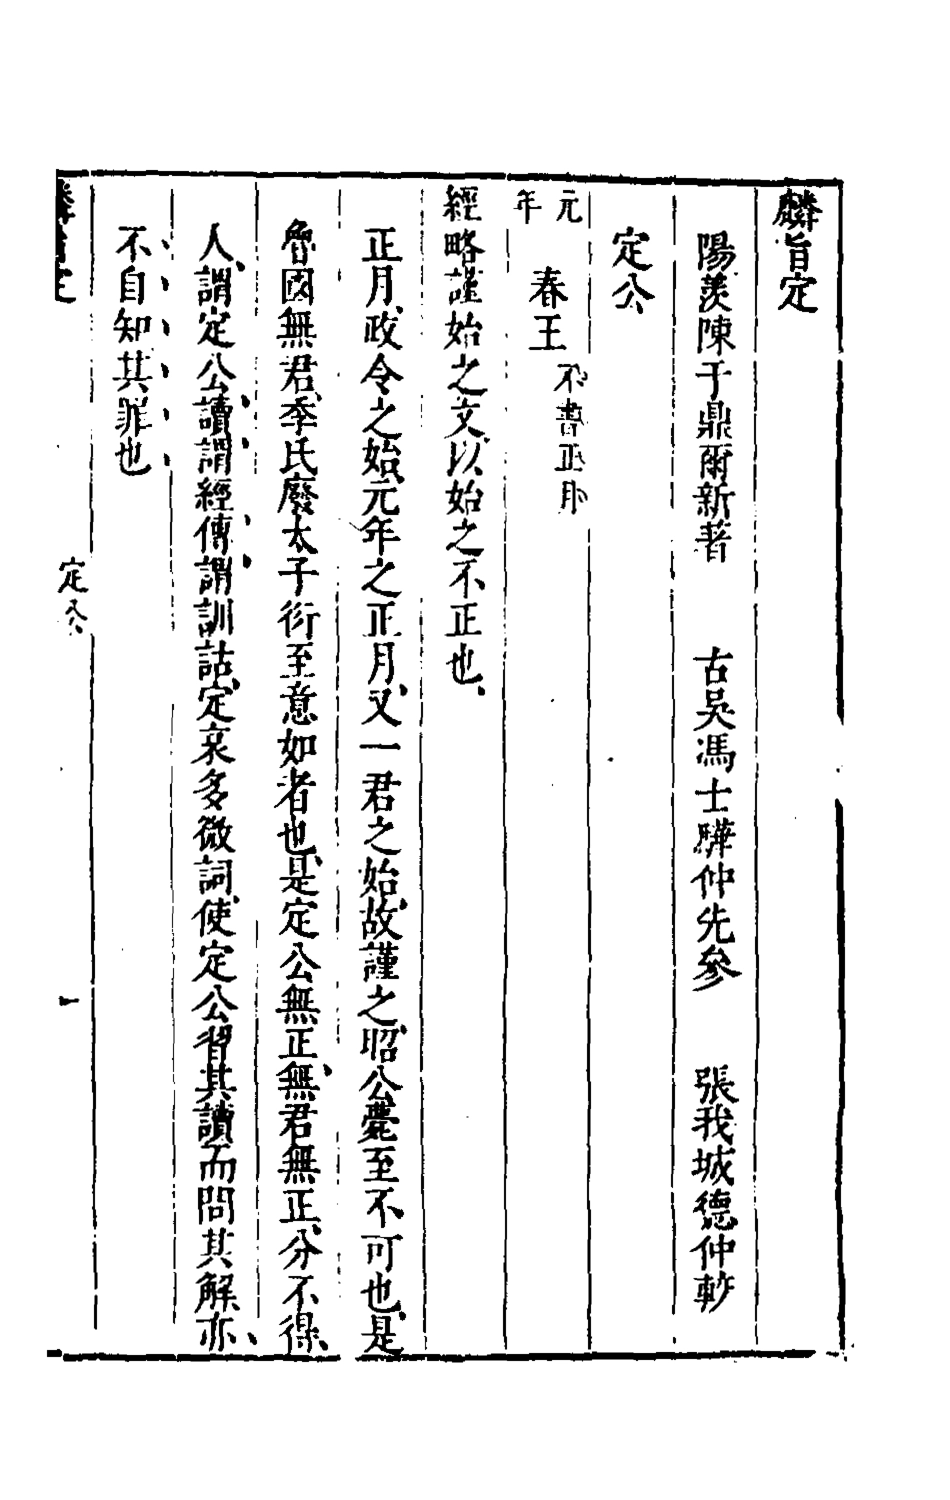 麟旨定
陽羨陳于鼎爾新著　古吳馮士驊仲先參　張我城德仲較
定公
元年　春王　不書正月
經略謹始之文以始之不正也
正月政令之始元年之正月又一君之始故謹之昭公薨至不可也是
魯國無君季氏廢太子衍至意如者也是定公無正無君無正分不得
人謂定公讀謂經傳謂訓詁定哀多微詞使定公習其讀而問其解亦
不自知其罪也
麟旨定
定公
一